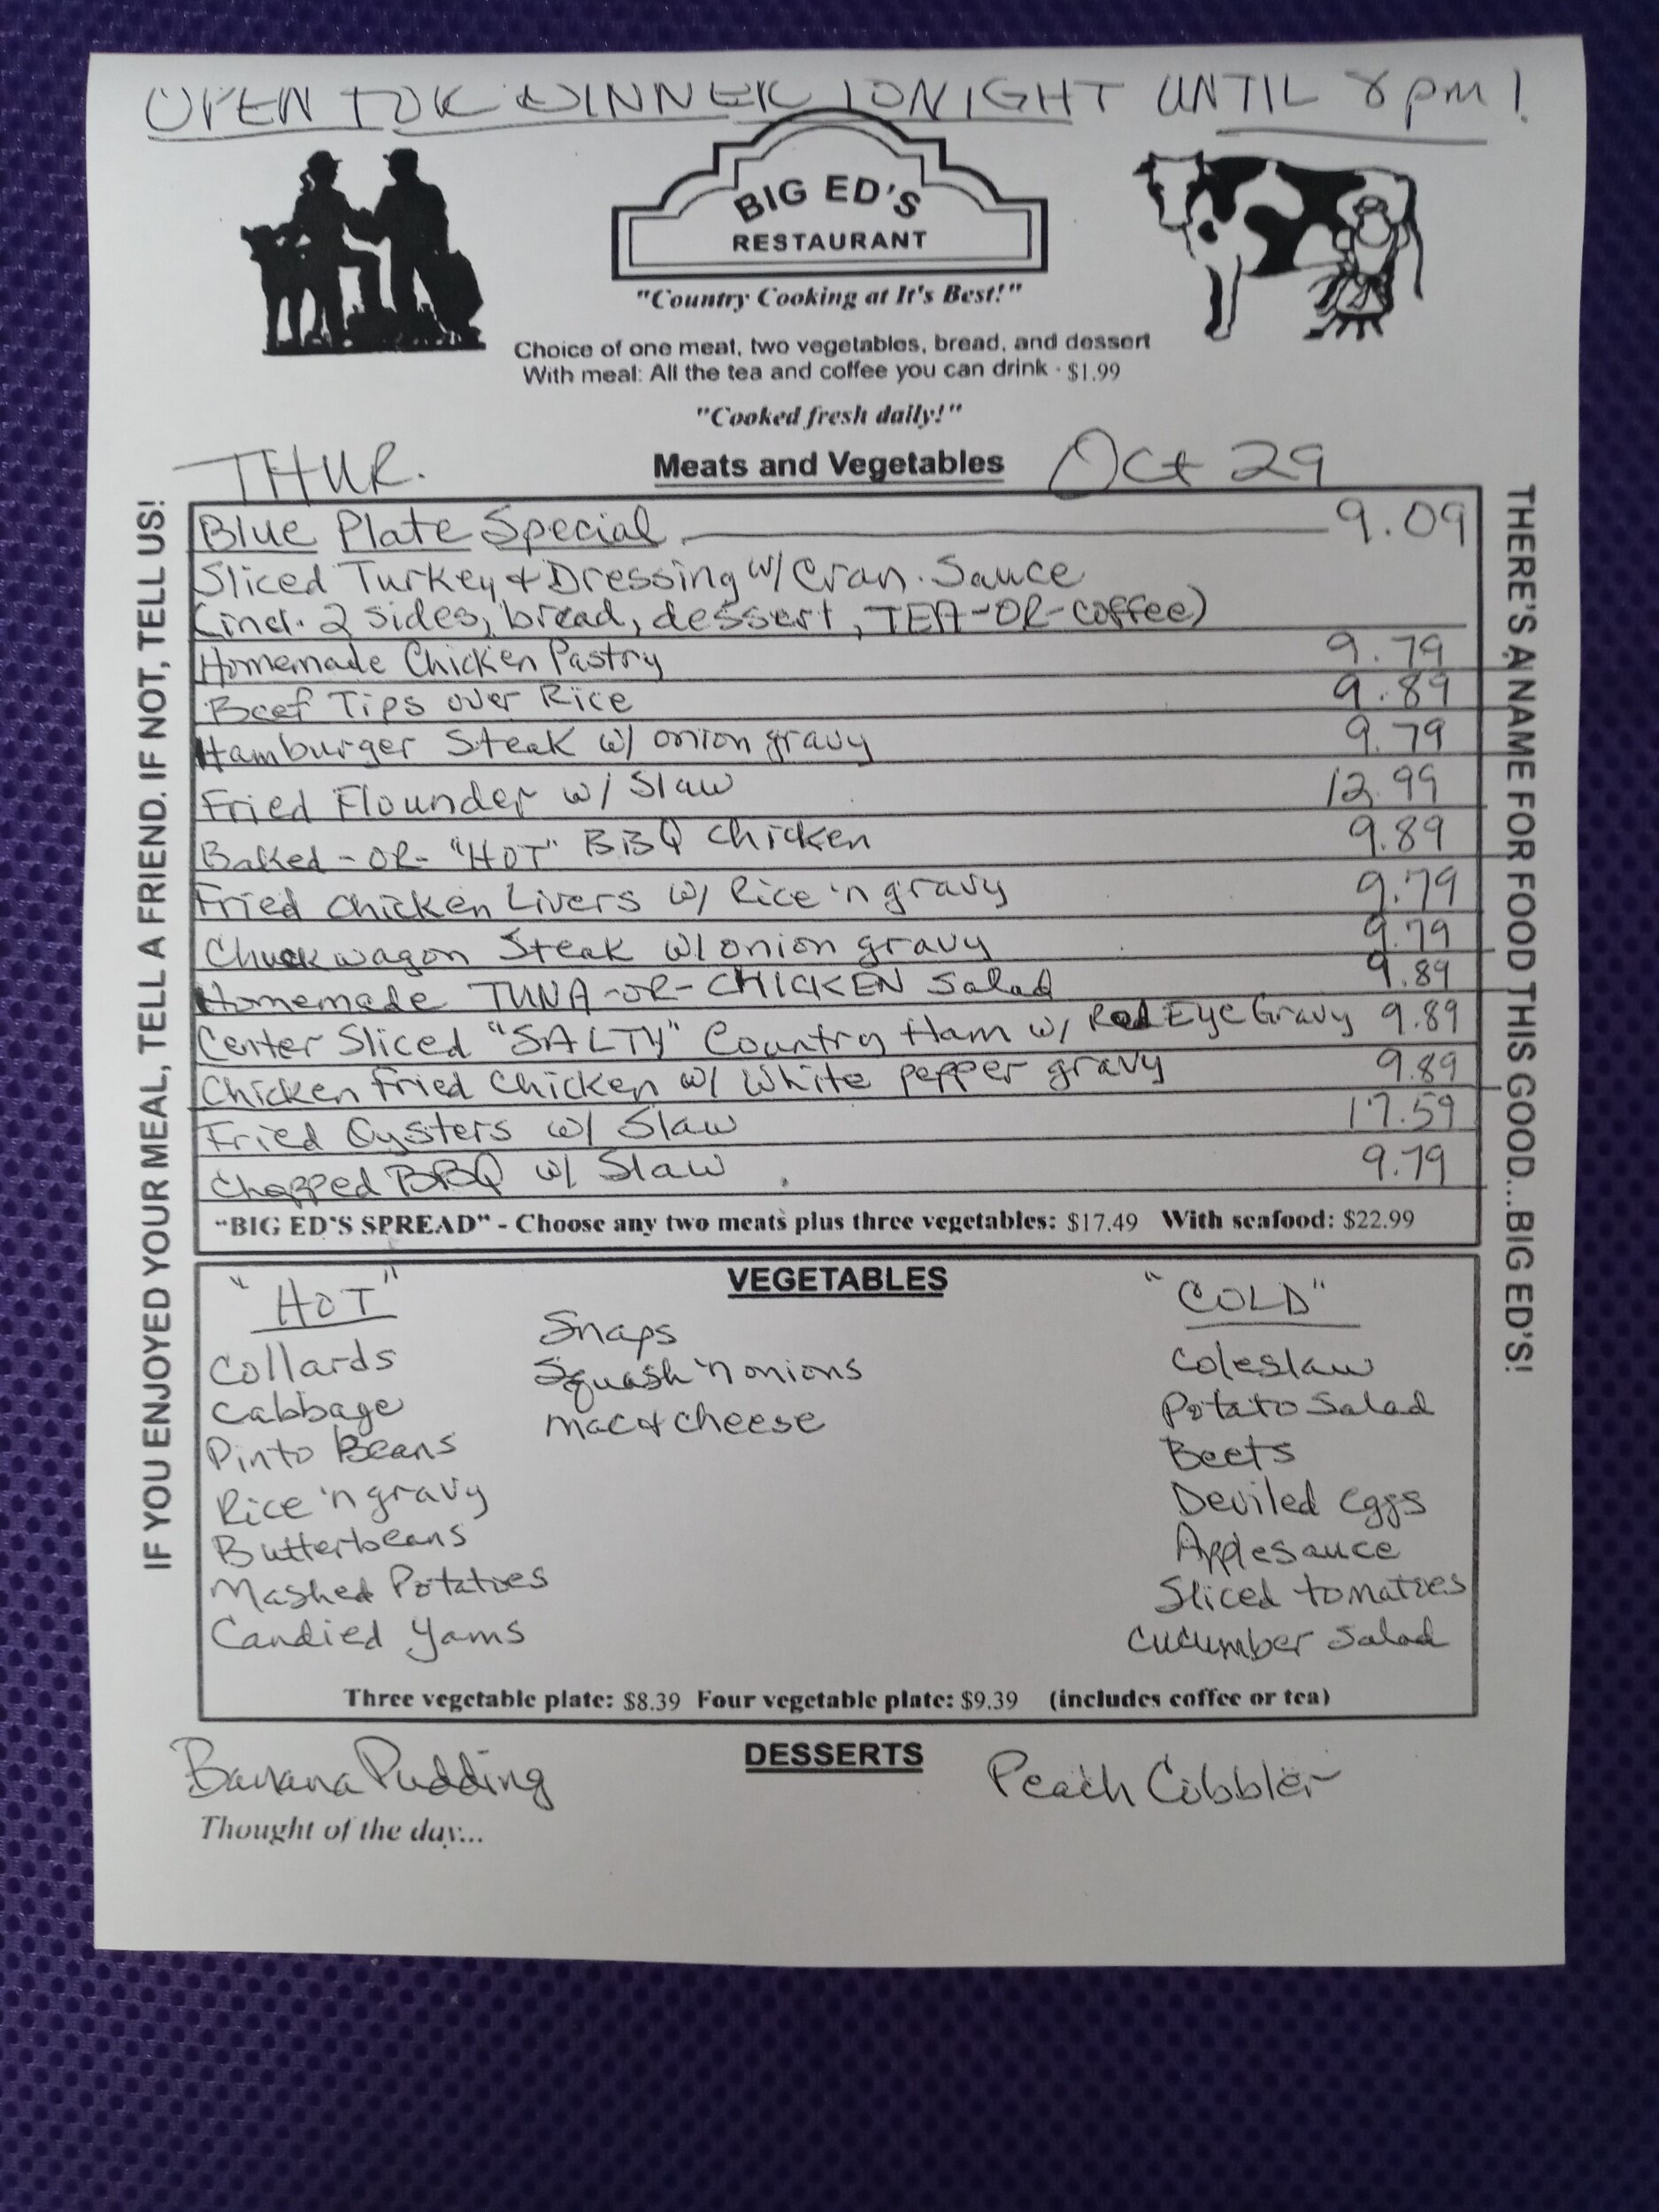 OPEN FOR DINNER TONIGHT UNTIL 8pm!
BIG ED'S
RESTAURANT
"Country Cooking at It's Best!"
Choice of one meat, two vegetables, bread, and dessert
With meal: All the tea and coffee you can drink - $1.99
"Cooked fresh daily!"
THUR. Meats and Vegetables Oct 29
IF YOU ENJOYED YOUR MEAL, TELL A FRIEND. IF NOT, TELL US!
Blue Plate Special 9.09
Sliced Turkey & Dressing w/ Cran. Sauce
(incl. 2 sides, bread, dessert, TEA-OR-coffee)
Homemade Chicken Pastry 9.79
Beef Tips over Rice 9.89
Hamburger Steak w/ onion gravy 9.79
Fried Flounder w/ Slaw 12.99
Baked -OR- "HOT" BBQ Chicken 9.89
Fried Chicken Livers w/ Rice 'n gravy 9.79
Chuckwagon Steak w/ onion gravy 9.79
Homemade TUNA-OR-CHICKEN Salad 9.89
Center Sliced "SALTY" Country Ham w/ Red Eye Gravy 9.89
Chicken Fried Chicken w/ White pepper gravy 9.89
Fried Oysters w/ Slaw 17.59
Chopped BBQ w/ Slaw 9.79
"BIG ED'S SPREAD" - Choose any two meats plus three vegetables: $17.49 With seafood: $22.99
THERE'S A NAME FOR FOOD THIS GOOD...BIG ED'S!
VEGETABLES
"HOT"
Collards
Cabbage
Pinto Beans
Rice 'n gravy
Butterbeans
Mashed Potatoes
Candied Yams
Snaps
Squash 'n onions
Mac & cheese
"COLD"
Coleslaw
Potato Salad
Beets
Deviled eggs
Applesauce
Sliced tomatoes
Cucumber Salad
Three vegetable plate: $8.39 Four vegetable plate: $9.39 (includes coffee or tea)
DESSERTS
Banana Pudding Peach Cobbler
Thought of the day...